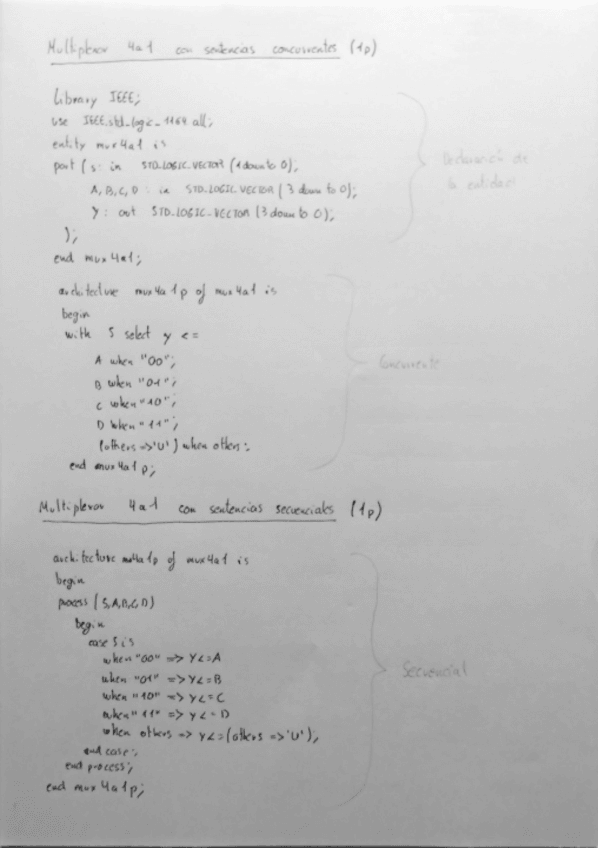 Multiplexor 4a1 con sentencias concurrentes (1p)
Library IEEE;
use IEEE.std_logic_1164.all;
entity mux4a1 is
port ( s: in STD_LOGIC_VECTOR (1 down to 0);
Declaración de
la entidad
A, B, C, D : in STD_LOGIC_VECTOR ( 3 down to 0);
Y : out STD_LOGIC_VECTOR (3 down to 0);
);
end mux4a1;
architecture mux4a1p of mux4a1 is
begin
with S select y <=
A when "00";
Concurrente
B when "01";
C when "10";
D when "11";
(others =>'U') when others;
end mux4a1p;
Multiplexor 4a1 con sentencias secuenciales (1p)
architecture mux4a1p of mux4a1 is
begin
process (S,A,B,C,D)
begin
case S is
when "00" => Y<=A
when "01" => Y<=B
Secuencial
when "10" => Y<=C
when "11" => Y<=D
when others => Y<=(others =>'U');
end case;
end process;
end mux4a1p;